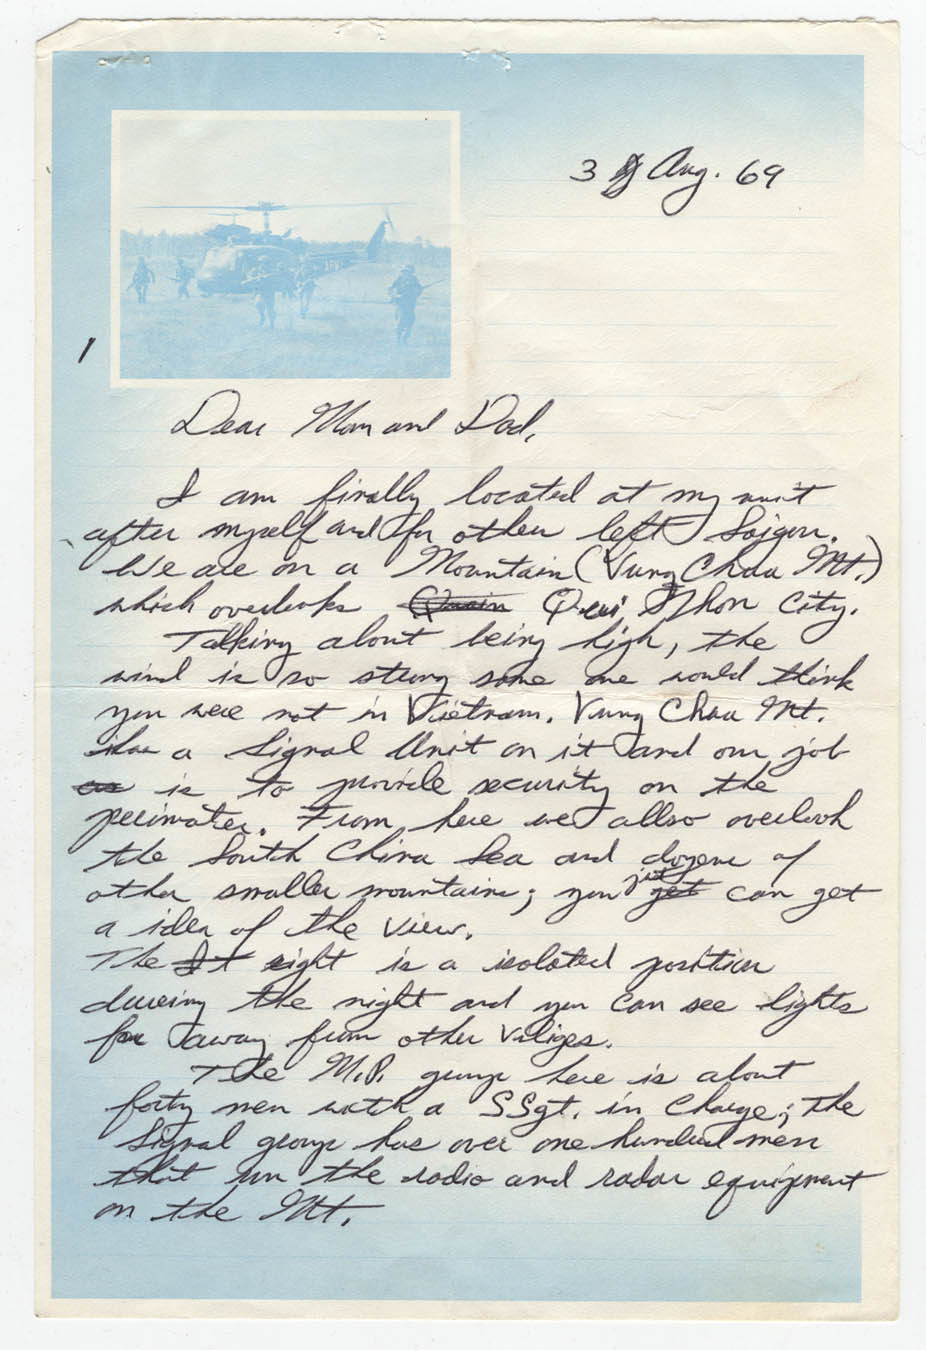 3 Aug. 69
1
ARMY
Dear Mom and Dad,
I am finally located at my unit
after myself and for other left Saigon.
We are on a Mountain (Vung Chau Mt.)
which overlooks Qui Nhon City.
Talking about being high, the
wind is so strong some one would think
you were not in Vietnam. Vung Chau Mt.
has a Signal Unit on it and our job
is to provide security on the
perimater. From here we allso overlook
the South China Sea and dozens of
other smaller mountains; you just can get
a idea of the view.
The sight is a isolated position
dureing the night and you can see lights
far away from other viliges.
The M.P. group here is about
forty men with a SSgt. in charge; the
Signal group has over one hundred men
that run the radio and radar equipment
on the Mt.